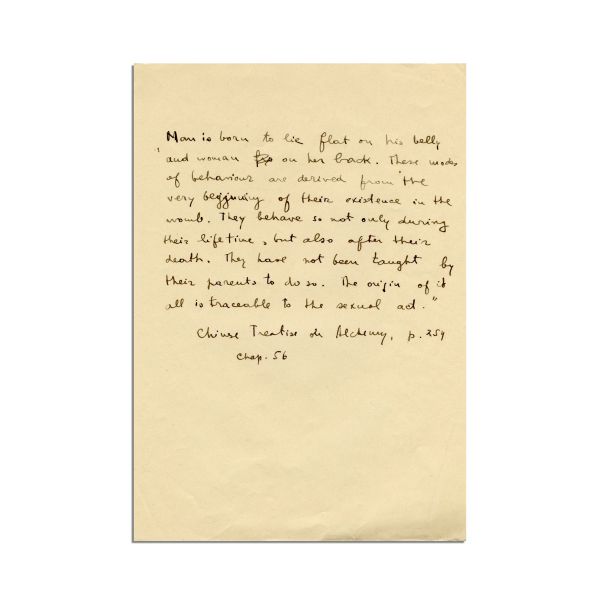 Man is born to lie flat on his belly
"and woman on her back. These modes
of behaviour are derived from the
very beginning of their existence in the
womb. They behave so not only during
their lifetime, but also after their
death. They have not been taught by
their parents to do so. The origin of it
all is traceable to the sexual act."
Chinese Treatise on Alchemy, p. 259
Chap. 56